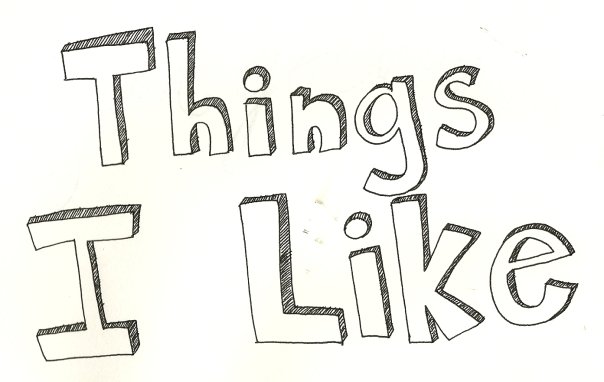 Things
I Like